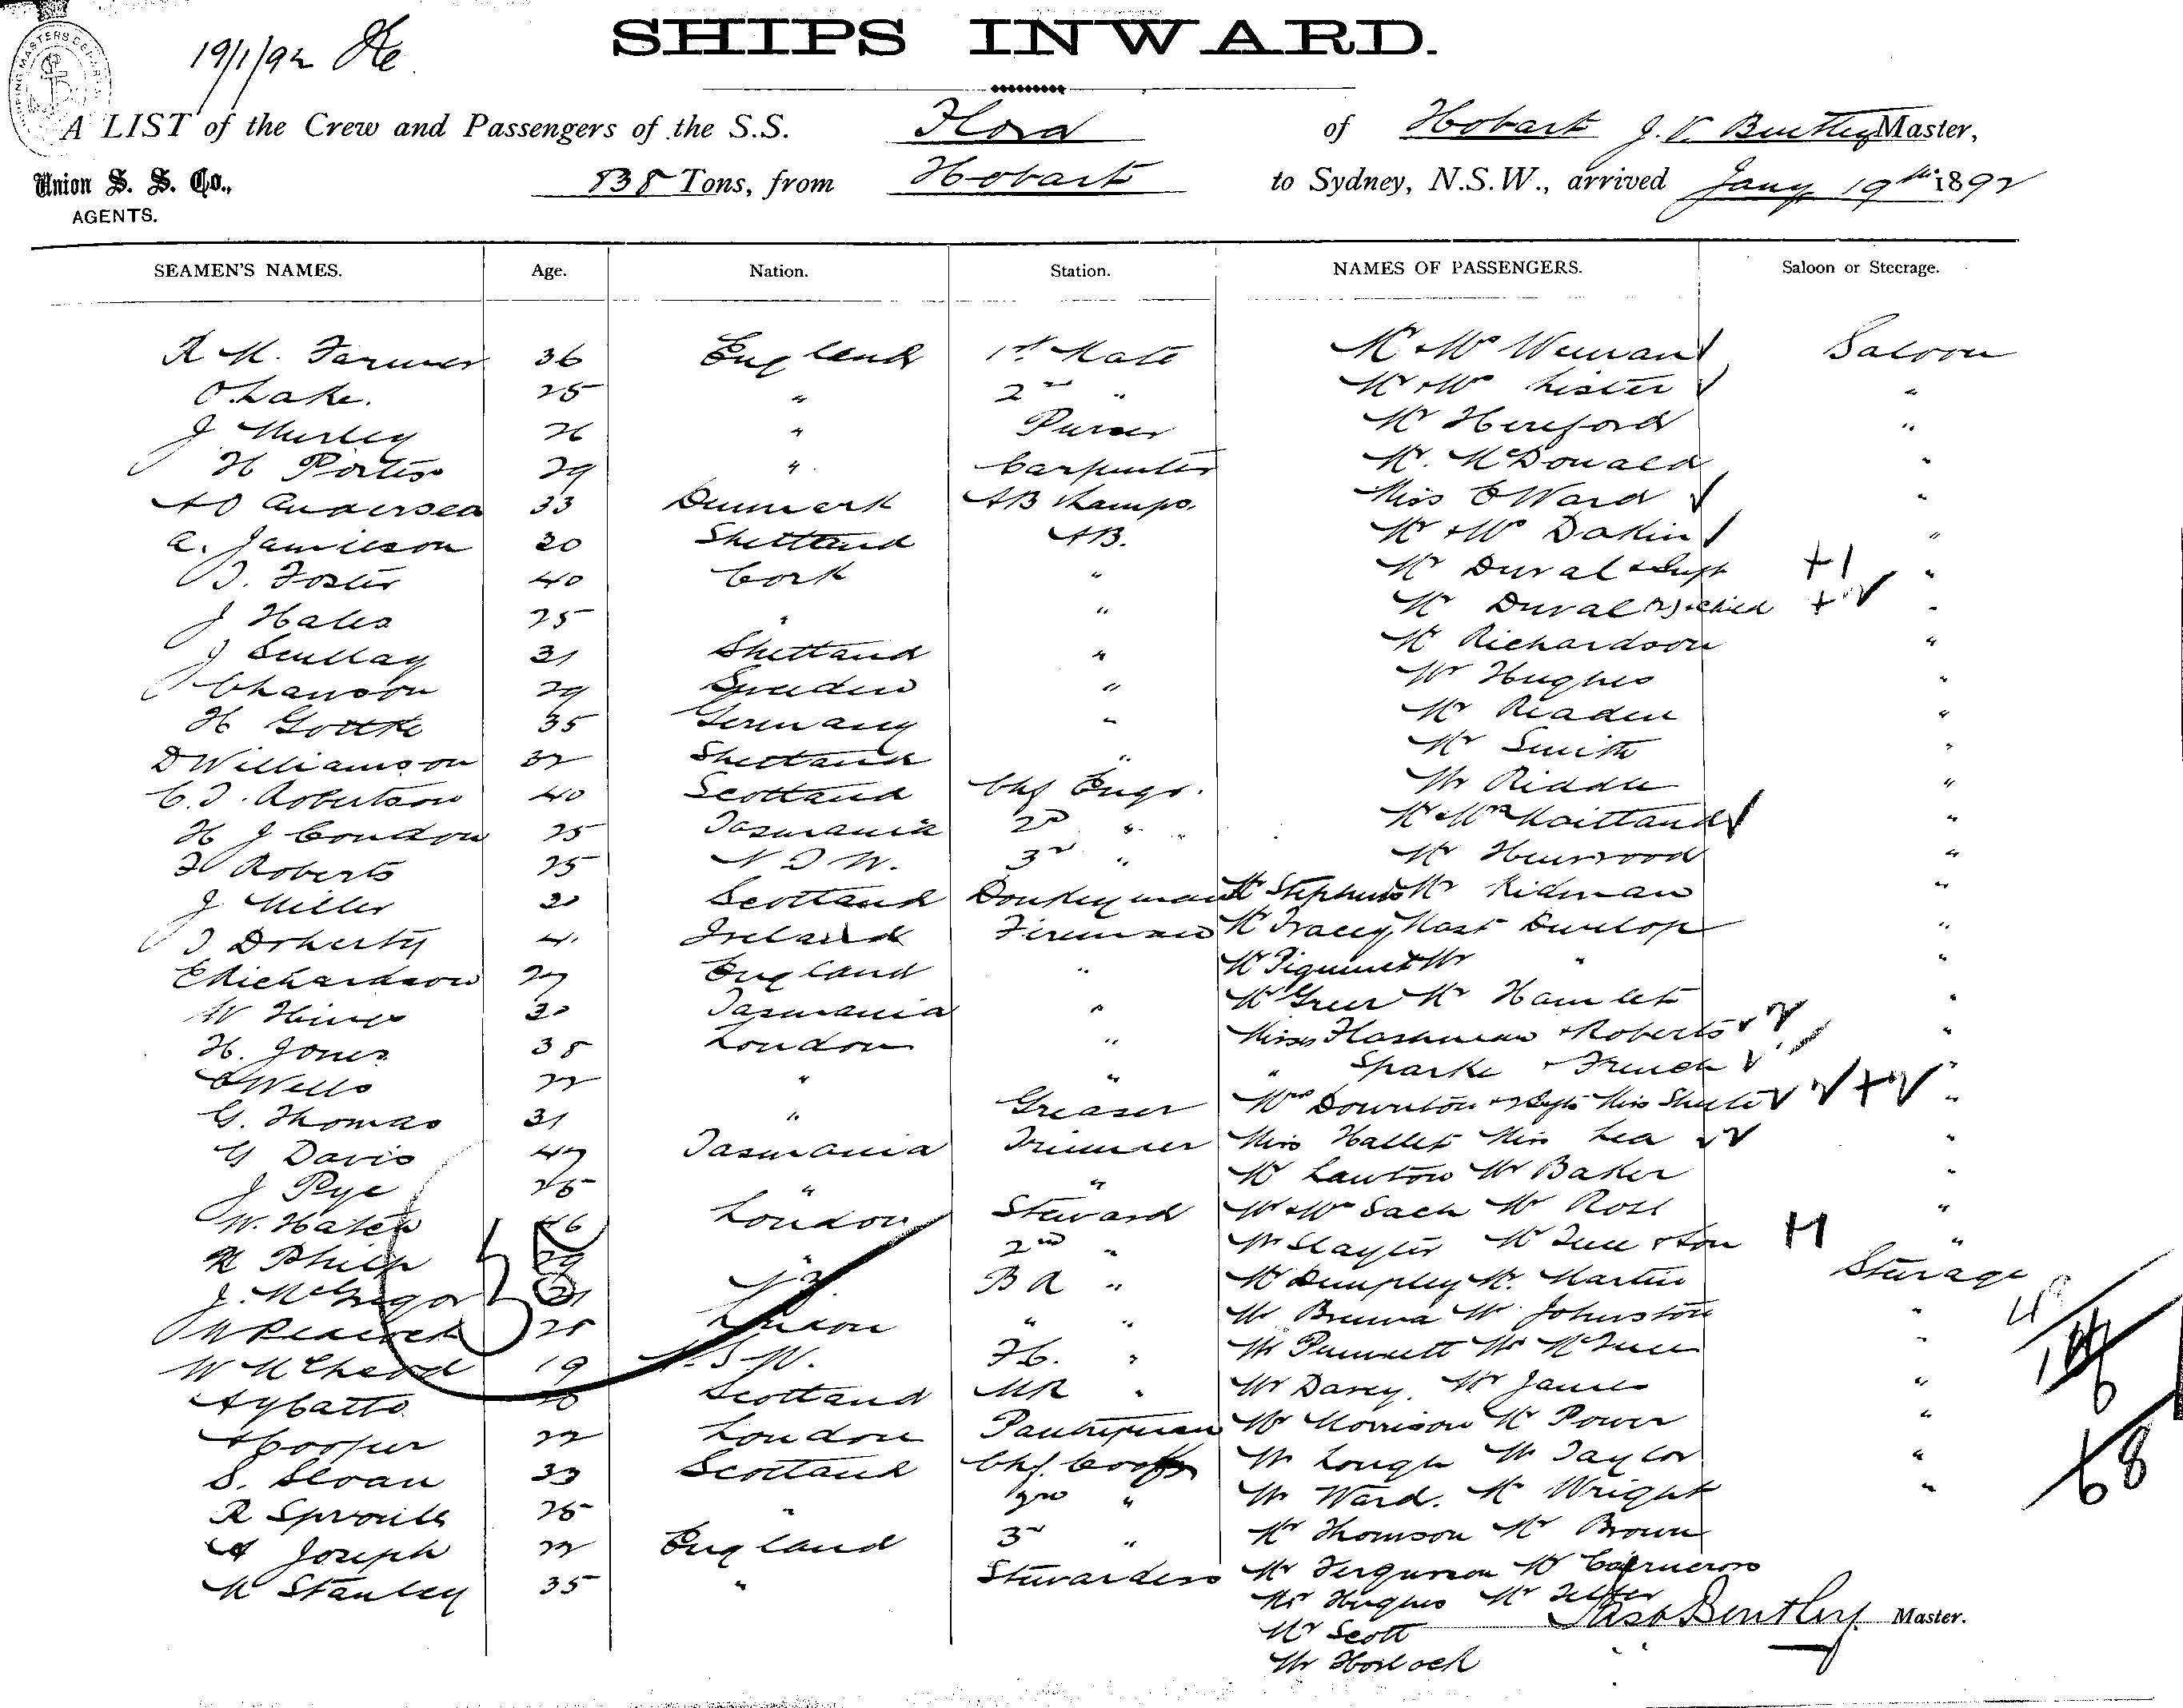 19/1/92
SHIPS INWARD.
A LIST of the Crew and Passengers of the S.S. Flora of Hobart J. V. Bentley Master,
Union S. S. Co., 838 Tons, from Hobart to Sydney, N.S.W., arrived Jany 19th 1892
AGENTS.
SEAMEN'S NAMES. Age. Nation. Station. NAMES OF PASSENGERS. Saloon or Steerage.
R M. Farmer 36 England 1st Mate Mr & Mrs Saloon
O. Lake. 25 " 2nd " Mr & Mrs Lister "
J Hurley 26 " Purser Mr Hereford "
H Porter 29 " Carpenter Mr. McDonald "
33 Denmark AB Lamps. Miss E Ward "
A. Jamieson 20 Shetland AB. Mr & Mrs Dakin "
T. Foster 40 Cork " Mr Duval & Infr +1 "
J Hales 25 " " Mr Duval & child "
J Scullay 31 Shetland " Mr Richardson "
29 Sweden " Mr Hughes "
H Gottke 35 Germany " Mr Readen "
D Williamson 32 Shetland " Mr Smith "
C. J. Robertson 40 Scotland Chf Engr. Mr Riddle "
H J Condon 25 Tasmania 2nd " " Mr & Mrs Maitland "
F Roberts 25 N S W. 3rd " Mr Henwood "
J Miller 30 Scotland Donkeyman Mr Stephens Mr Kidman "
J Doherty 41 Ireland Fireman Mr Tracey, Mast Dunlop "
E Richardson 27 England " Mr Piguenit Mr " "
W Hines 30 Tasmania " Mr Greer Mr Hamlet "
H. Jones 38 London " Misses Flashman & Roberts "
Wells 22 " " " Sparke & French "
G. Thomas 31 " Greaser Mrs Downton & Miss "
G Davis 47 Tasmania Trimmer Miss Hallet Miss Lea "
J Pye 25 " " Mr Lawton Mr Baker "
W. Hatch 46 London Steward Mr & Mrs Sach Mr Ross "
R Philp 29 2nd " Mr Slayter Mr & Son "
J. McGregor 21 N.Z. B R " Mr Dumpley Mr. Martin Steerage
W Peacock 25 London " " Mr Johnston "
W McCheod 19 N.S.W. F C. " Mr Punnett Mr "
20 Scotland MR " Mr Darcy. Mr James "
A Cooper 22 London Pantryman Mr Morrison Mr Power "
S. Sloan 33 Scotland Chf. Cook Mr Lough Mr Taylor "
R Sproule 25 " 2nd " Mr Ward. Mr Wright "
A Joseph 22 England 3rd " Mr Thomson Mr Brown
M Stanley 35 " Stewardess Mr Ferguson Mr Cameron
Mr Hughes Mr Telfer
Mr Scott Jas V Bentley Master.
Mr Horlock
68